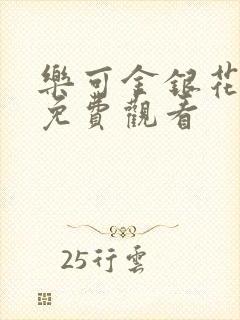 樂可金銀花
免費觀看
25行雲